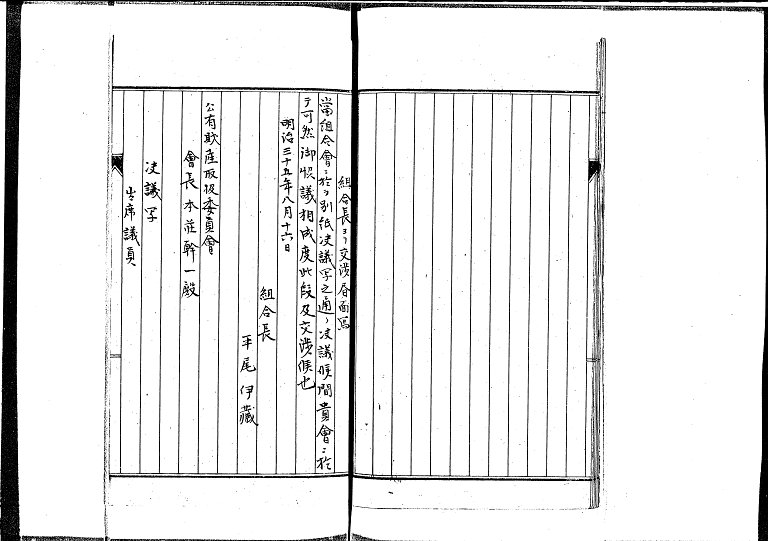 組合長ヨリ交渉書面写
當組合會ニ於テ別紙決議写之通リ決議候間貴會ニ於
テ可然御协議相成度此段及交渉候也
明治三十五年八月十六日
組合長
平尾伊蔵
公有財産取扱委員會
會長本荘幹一殿
決議写
出席議員